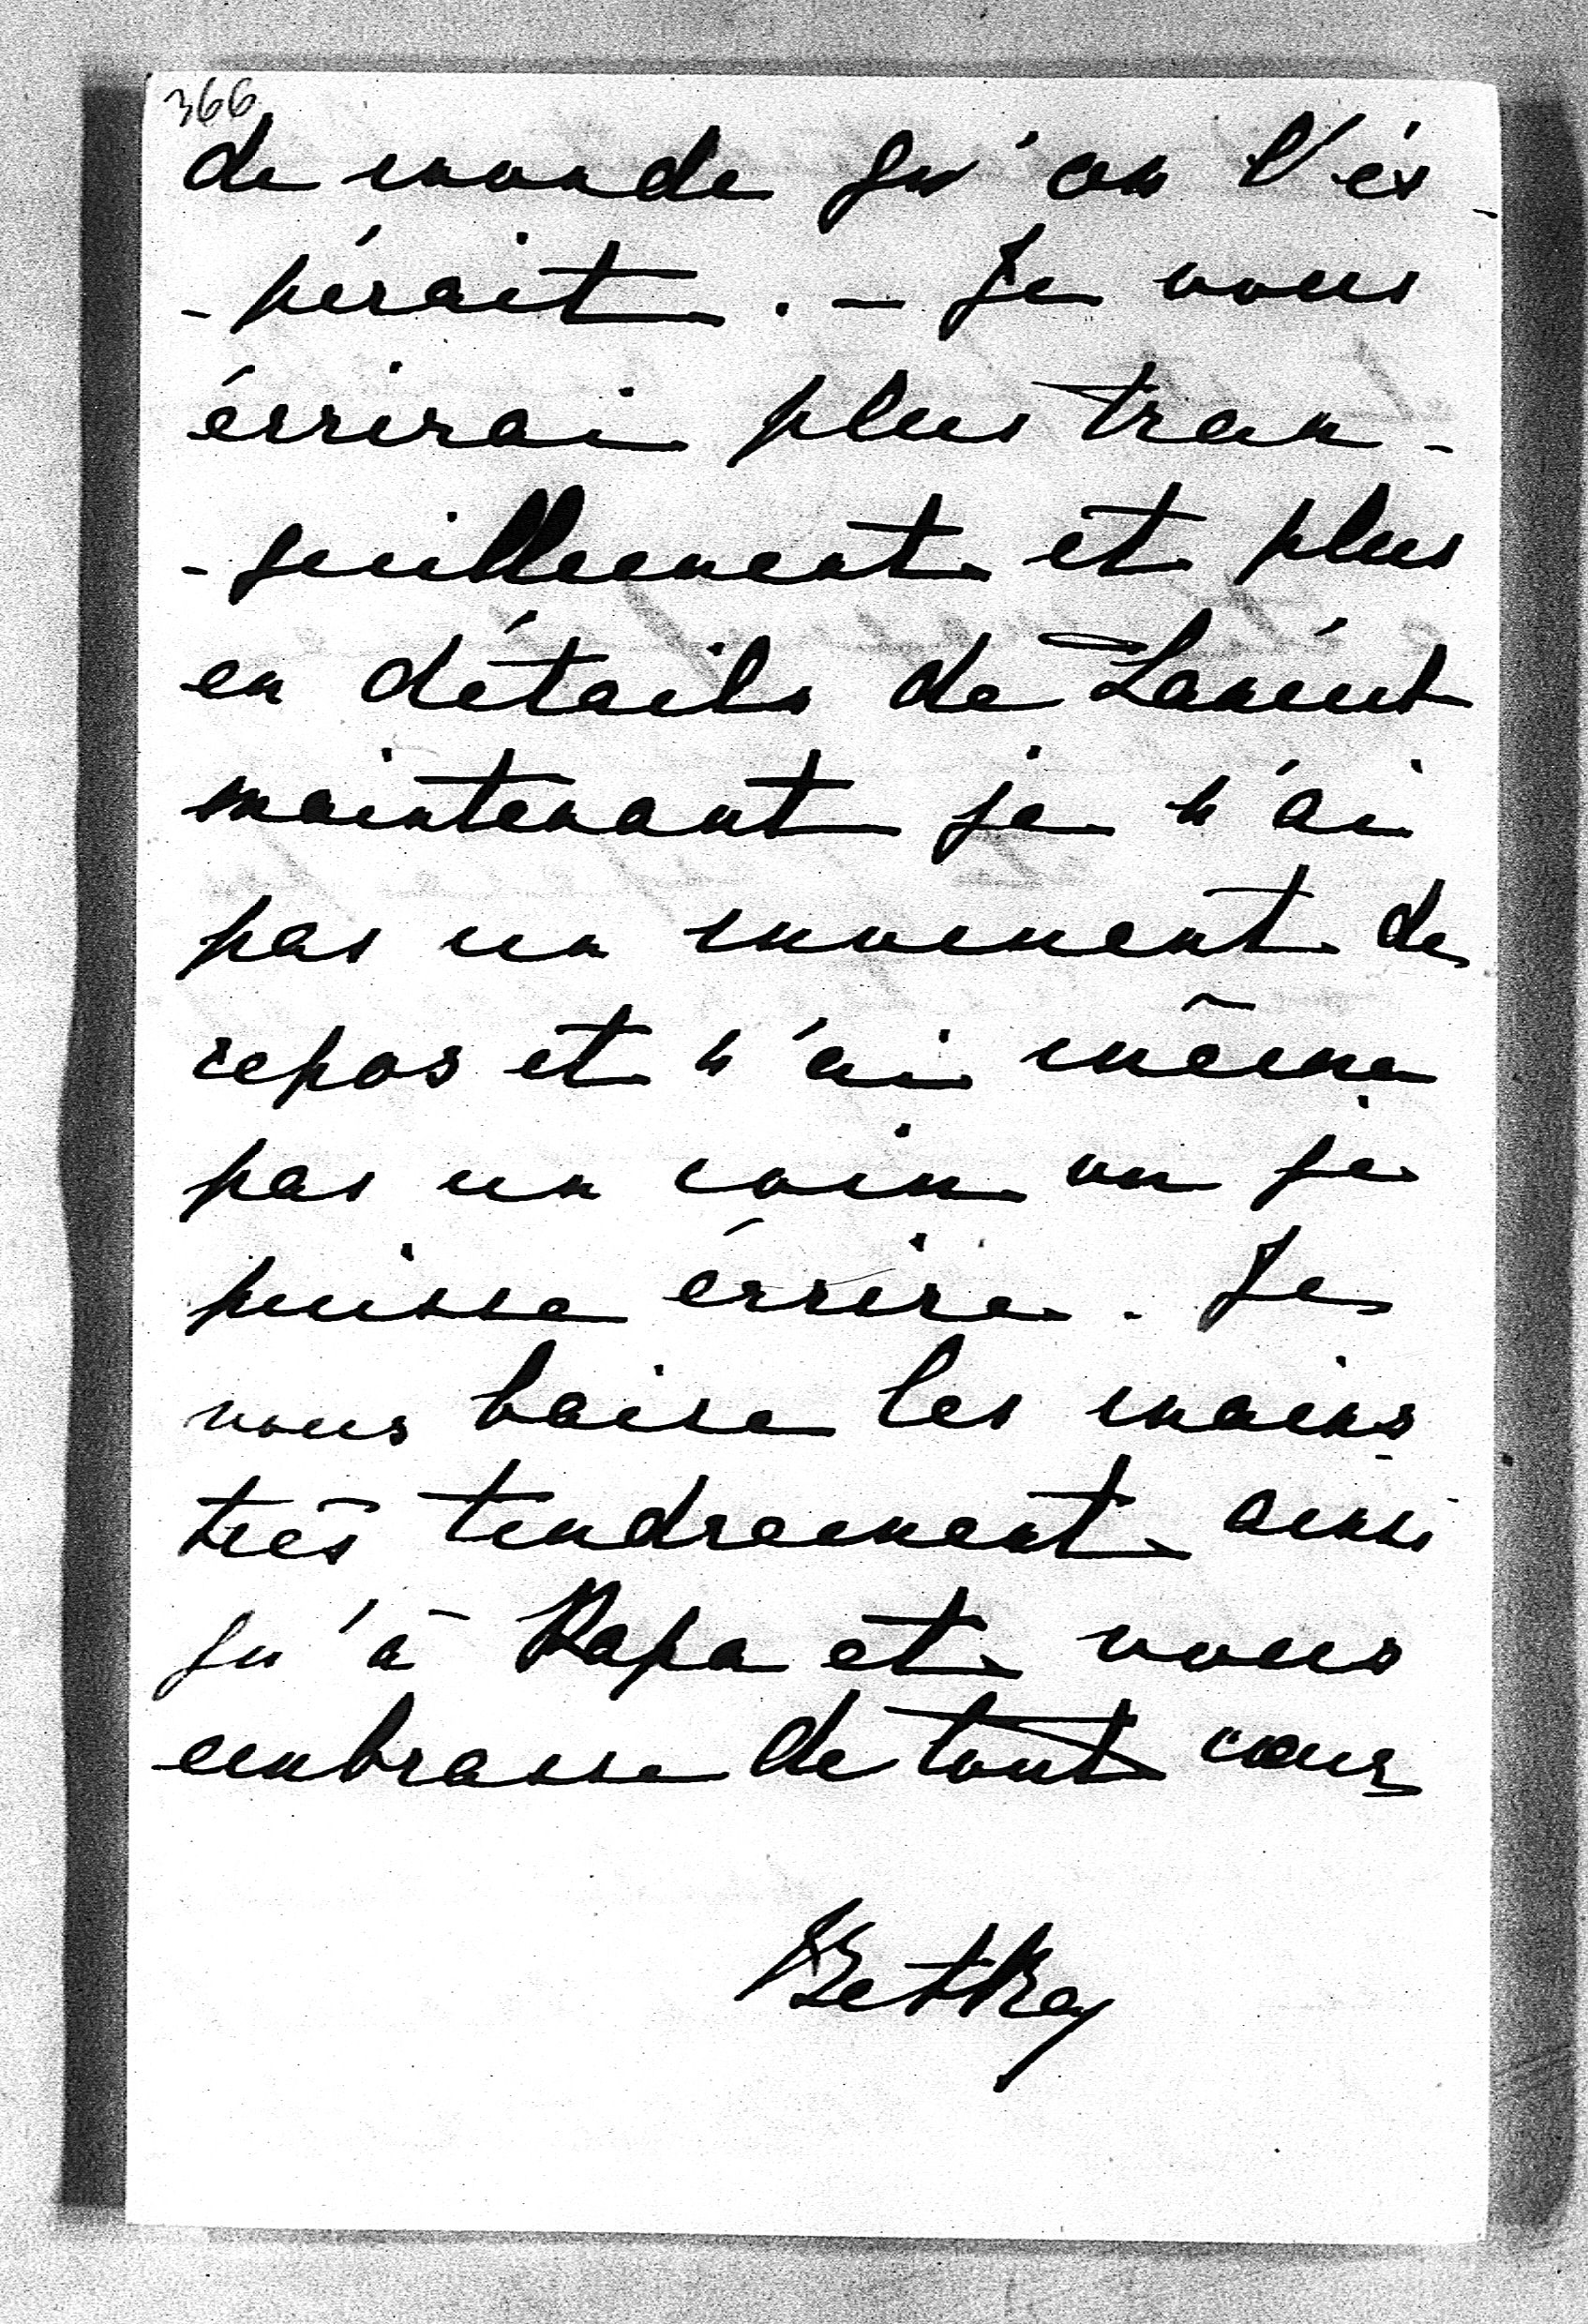 366
de monde qu'on l'és-
-pérait. — Je vous
écrirai plus tran-
-quillement et plus
en détails de Łańcut
maintenant je n'ai
pas un moment de
repos et n'ai même
pas un coin ou je
puisse écrire. Je
vous baise les mains
très tendrement ainsi
qu'à Papa et vous
embrasse de tout cœur
Betka